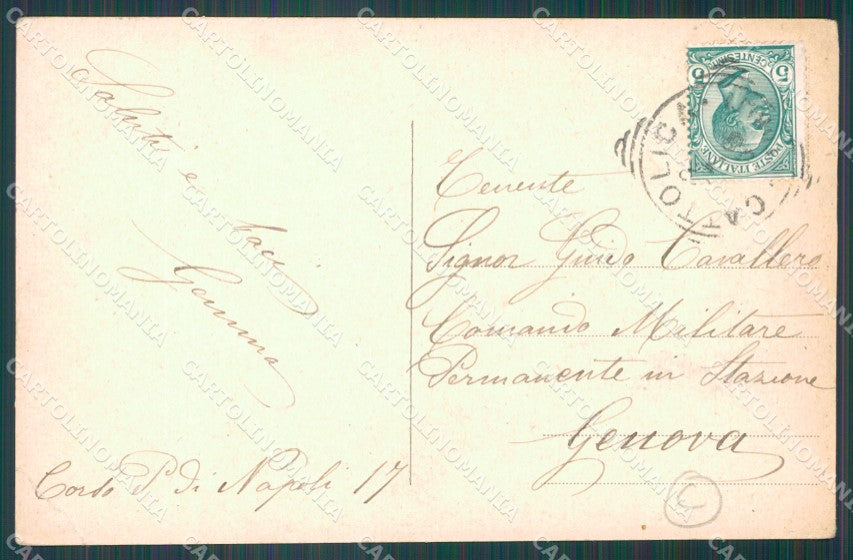 Saluti e
baci
Gemma
Corso P. di Napoli 17
Tenente
Signor Guido Cavallero
Comando Militare
Permanente in Stazione
Genova
5
CENTESIMI
5
POSTE ITALIANE
CATTOLICA
CARTOLINOMANIA